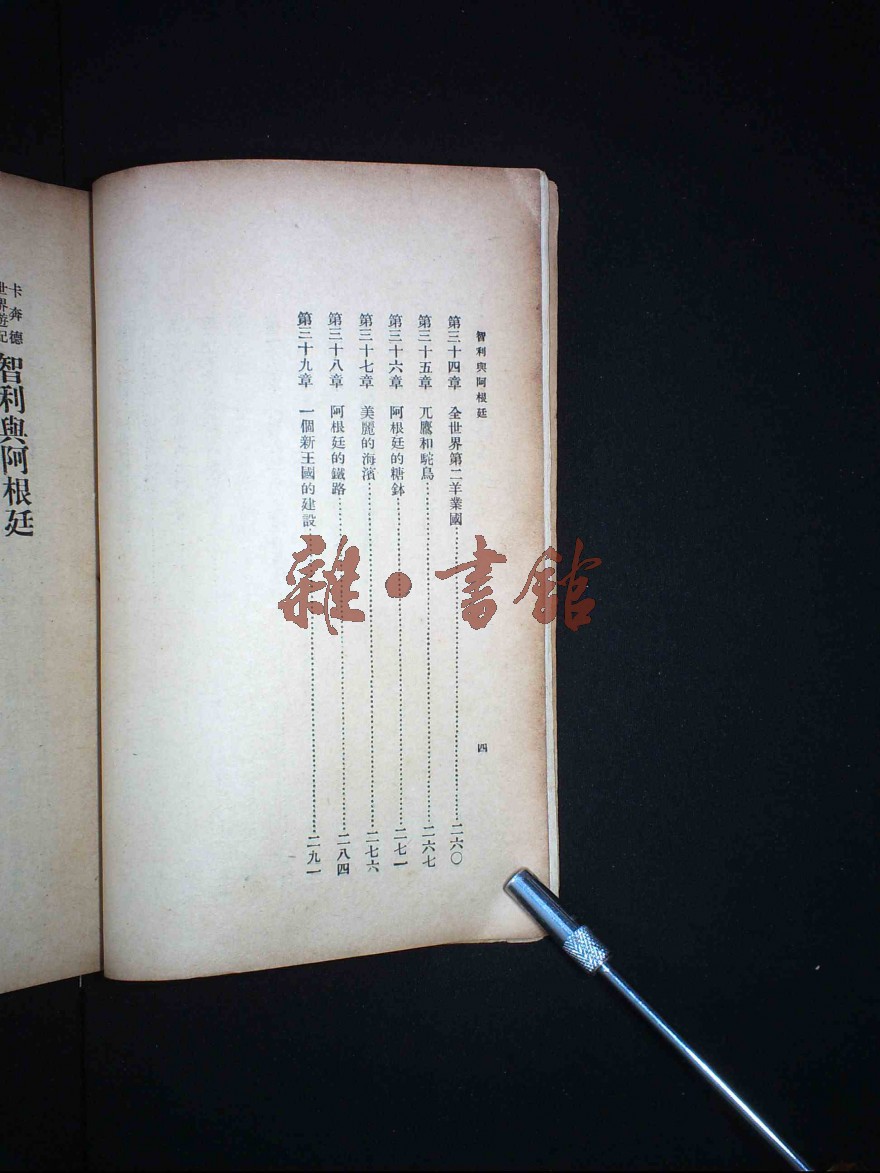 智利與阿根廷
四
第三十四章 全世界第二羊業國……二六〇
第三十五章 兀鷹和駝鳥……二六七
第三十六章 阿根廷的糖鉢……二七一
第三十七章 美麗的海濱……二七六
第三十八章 阿根廷的鐵路……二八四
第三十九章 一個新王國的建設……二九一
卡奔德
世界遊記
智利與阿根廷
雜·書館